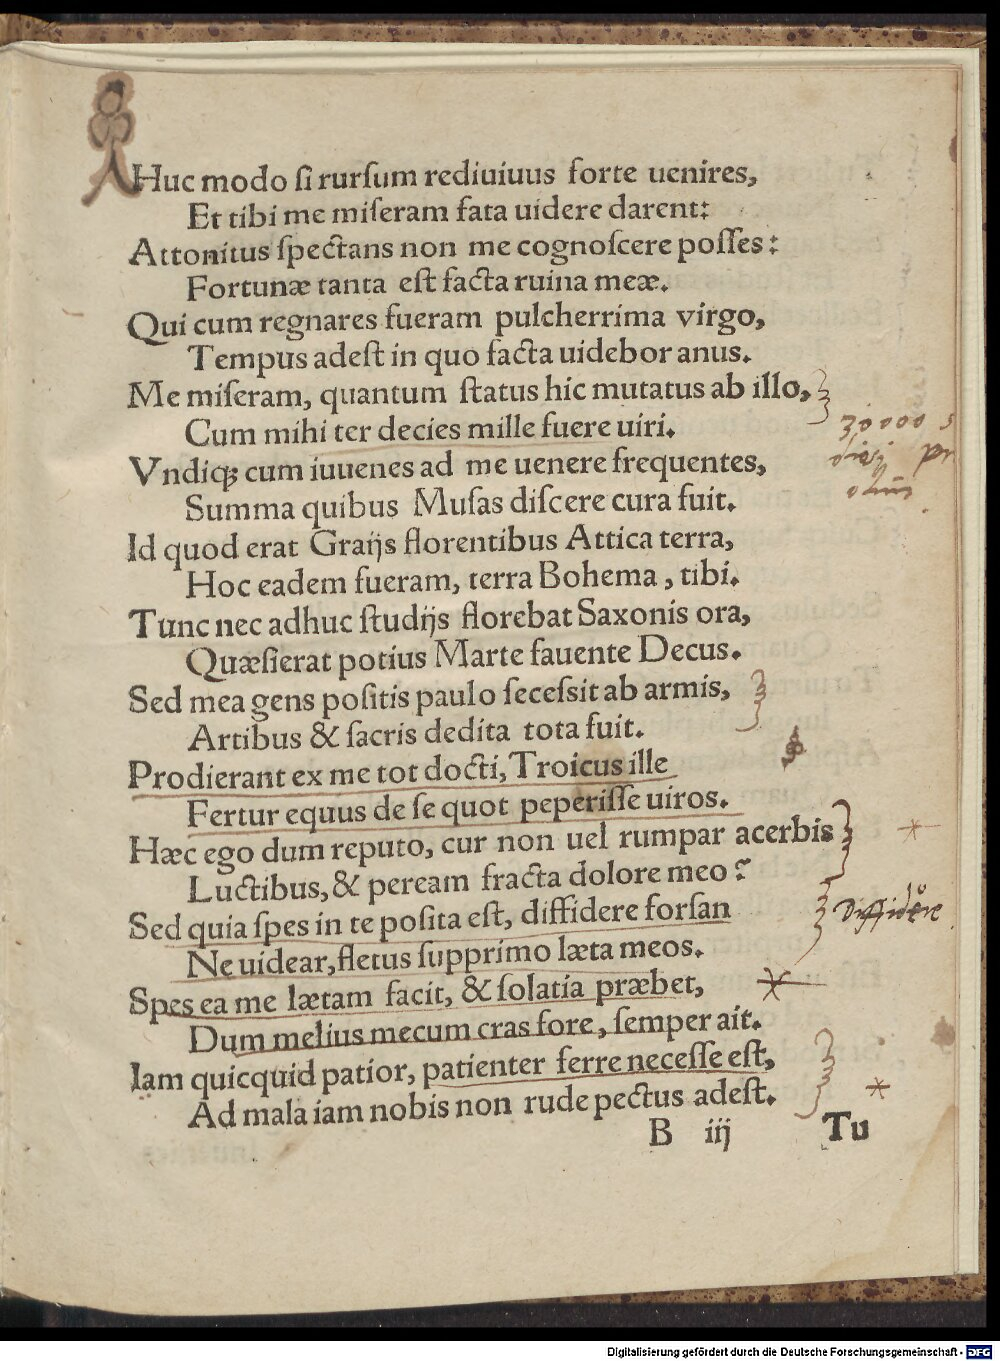 AHuc modo ſi rurſum rediuiuus forte uenires,
Et tibi me miſeram fata uidere darent:
Attonitus ſpectans non me cognoſcere poſſes:
Fortunæ tanta eſt facta ruina meæ.
Qui cum regnares fueram pulcherrima virgo,
Tempus adeſt in quo facta uidebor anus.
Me miſeram, quantum ſtatus hic mutatus ab illo,
Cum mihi ter decies mille fuere uiri.
30000
Vndiqꝫ cum iuuenes ad me uenere frequentes,
Summa quibus Muſas diſcere cura fuit.
Id quod erat Graijs florentibus Attica terra,
Hoc eadem fueram, terra Bohema, tibi.
Tunc nec adhuc ſtudijs florebat Saxonis ora,
Quæſierat potius Marte fauente Decus.
Sed mea gens poſitis paulo ſeceſsit ab armis,
Artibus & ſacris dedita tota fuit.
Prodierant ex me tot docti, Troicus ille
Fertur equus de ſe quot peperiſſe uiros.
Hæc ego dum reputo, cur non uel rumpar acerbis
Luctibus, & peream fracta dolore meo?
Sed quia ſpes in te poſita eſt, diffidere forſan
Diffidere
Ne uidear, fletus ſupprimo læta meos.
Spes ea me lætam facit, & ſolatia præbet,
Dum melius mecum cras fore, ſemper ait.
Iam quicquid patior, patienter ferre neceſſe eſt,
Ad mala iam nobis non rude pectus adeſt.
B iij Tu
Digitalisierung gefördert durch die Deutsche Forschungsgemeinschaft - DFG